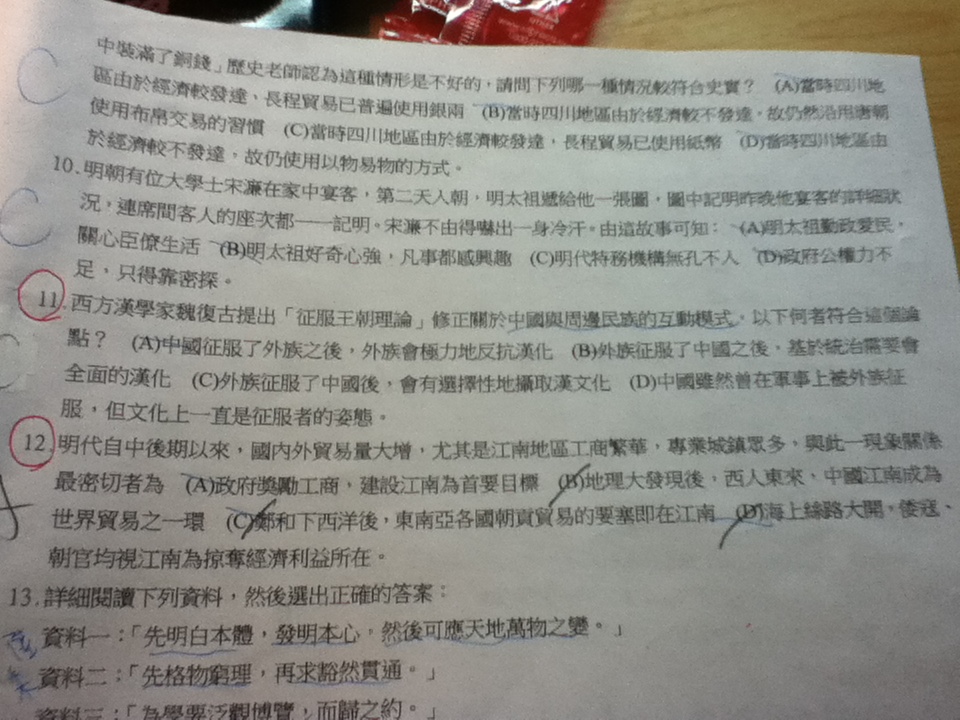 中裝滿了銅錢」歷史老師認為這種情形是不好的，請問下列哪一種情況較符合史實？ (A)當時四川地
區由於經濟較發達，長程貿易已普遍使用銀兩 (B)當時四川地區由於經濟較不發達，故仍然沿用唐朝
使用布帛交易的習慣 (C)當時四川地區由於經濟較發達，長程貿易已使用紙幣 (D)當時四川地區由
於經濟較不發達，故仍使用以物易物的方式。
10.明朝有位大學士宋濂在家中宴客，第二天入朝，明太祖遞給他一張圖，圖中記明昨晚他宴客的詳細狀
況，連席間客人的座次都一一記明。宋濂不由得嚇出一身冷汗。由這故事可知： (A)明太祖勤政愛民，
關心臣僚生活 (B)明太祖好奇心強，凡事都感興趣 (C)明代特務機構無孔不入 (D)政府公權力不
足，只得靠密探。
11.西方漢學家魏復古提出「征服王朝理論」修正關於中國與周邊民族的互動模式，以下何者符合這個論
點？ (A)中國征服了外族之後，外族會極力地反抗漢化 (B)外族征服了中國之後，基於統治需要會
全面的漢化 (C)外族征服了中國後，會有選擇性地攝取漢文化 (D)中國雖然曾在軍事上被外族征
服，但文化上一直是征服者的姿態。
12.明代自中後期以來，國內外貿易量大增，尤其是江南地區工商繁華，專業城鎮眾多，與此一現象關係
最密切者為 (A)政府獎勵工商，建設江南為首要目標 (B)地理大發現後，西人東來，中國江南成為
世界貿易之一環 (C)鄭和下西洋後，東南亞各國朝貢貿易的要塞即在江南 (D)海上絲路大開，倭寇、
朝官均視江南為掠奪經濟利益所在。
13.詳細閱讀下列資料，然後選出正確的答案：
資料一：「先明白本體，發明本心，然後可應天地萬物之變。」
資料二：「先格物窮理，再求豁然貫通。」
資料三：「為學要泛觀博覽，而歸之約。」